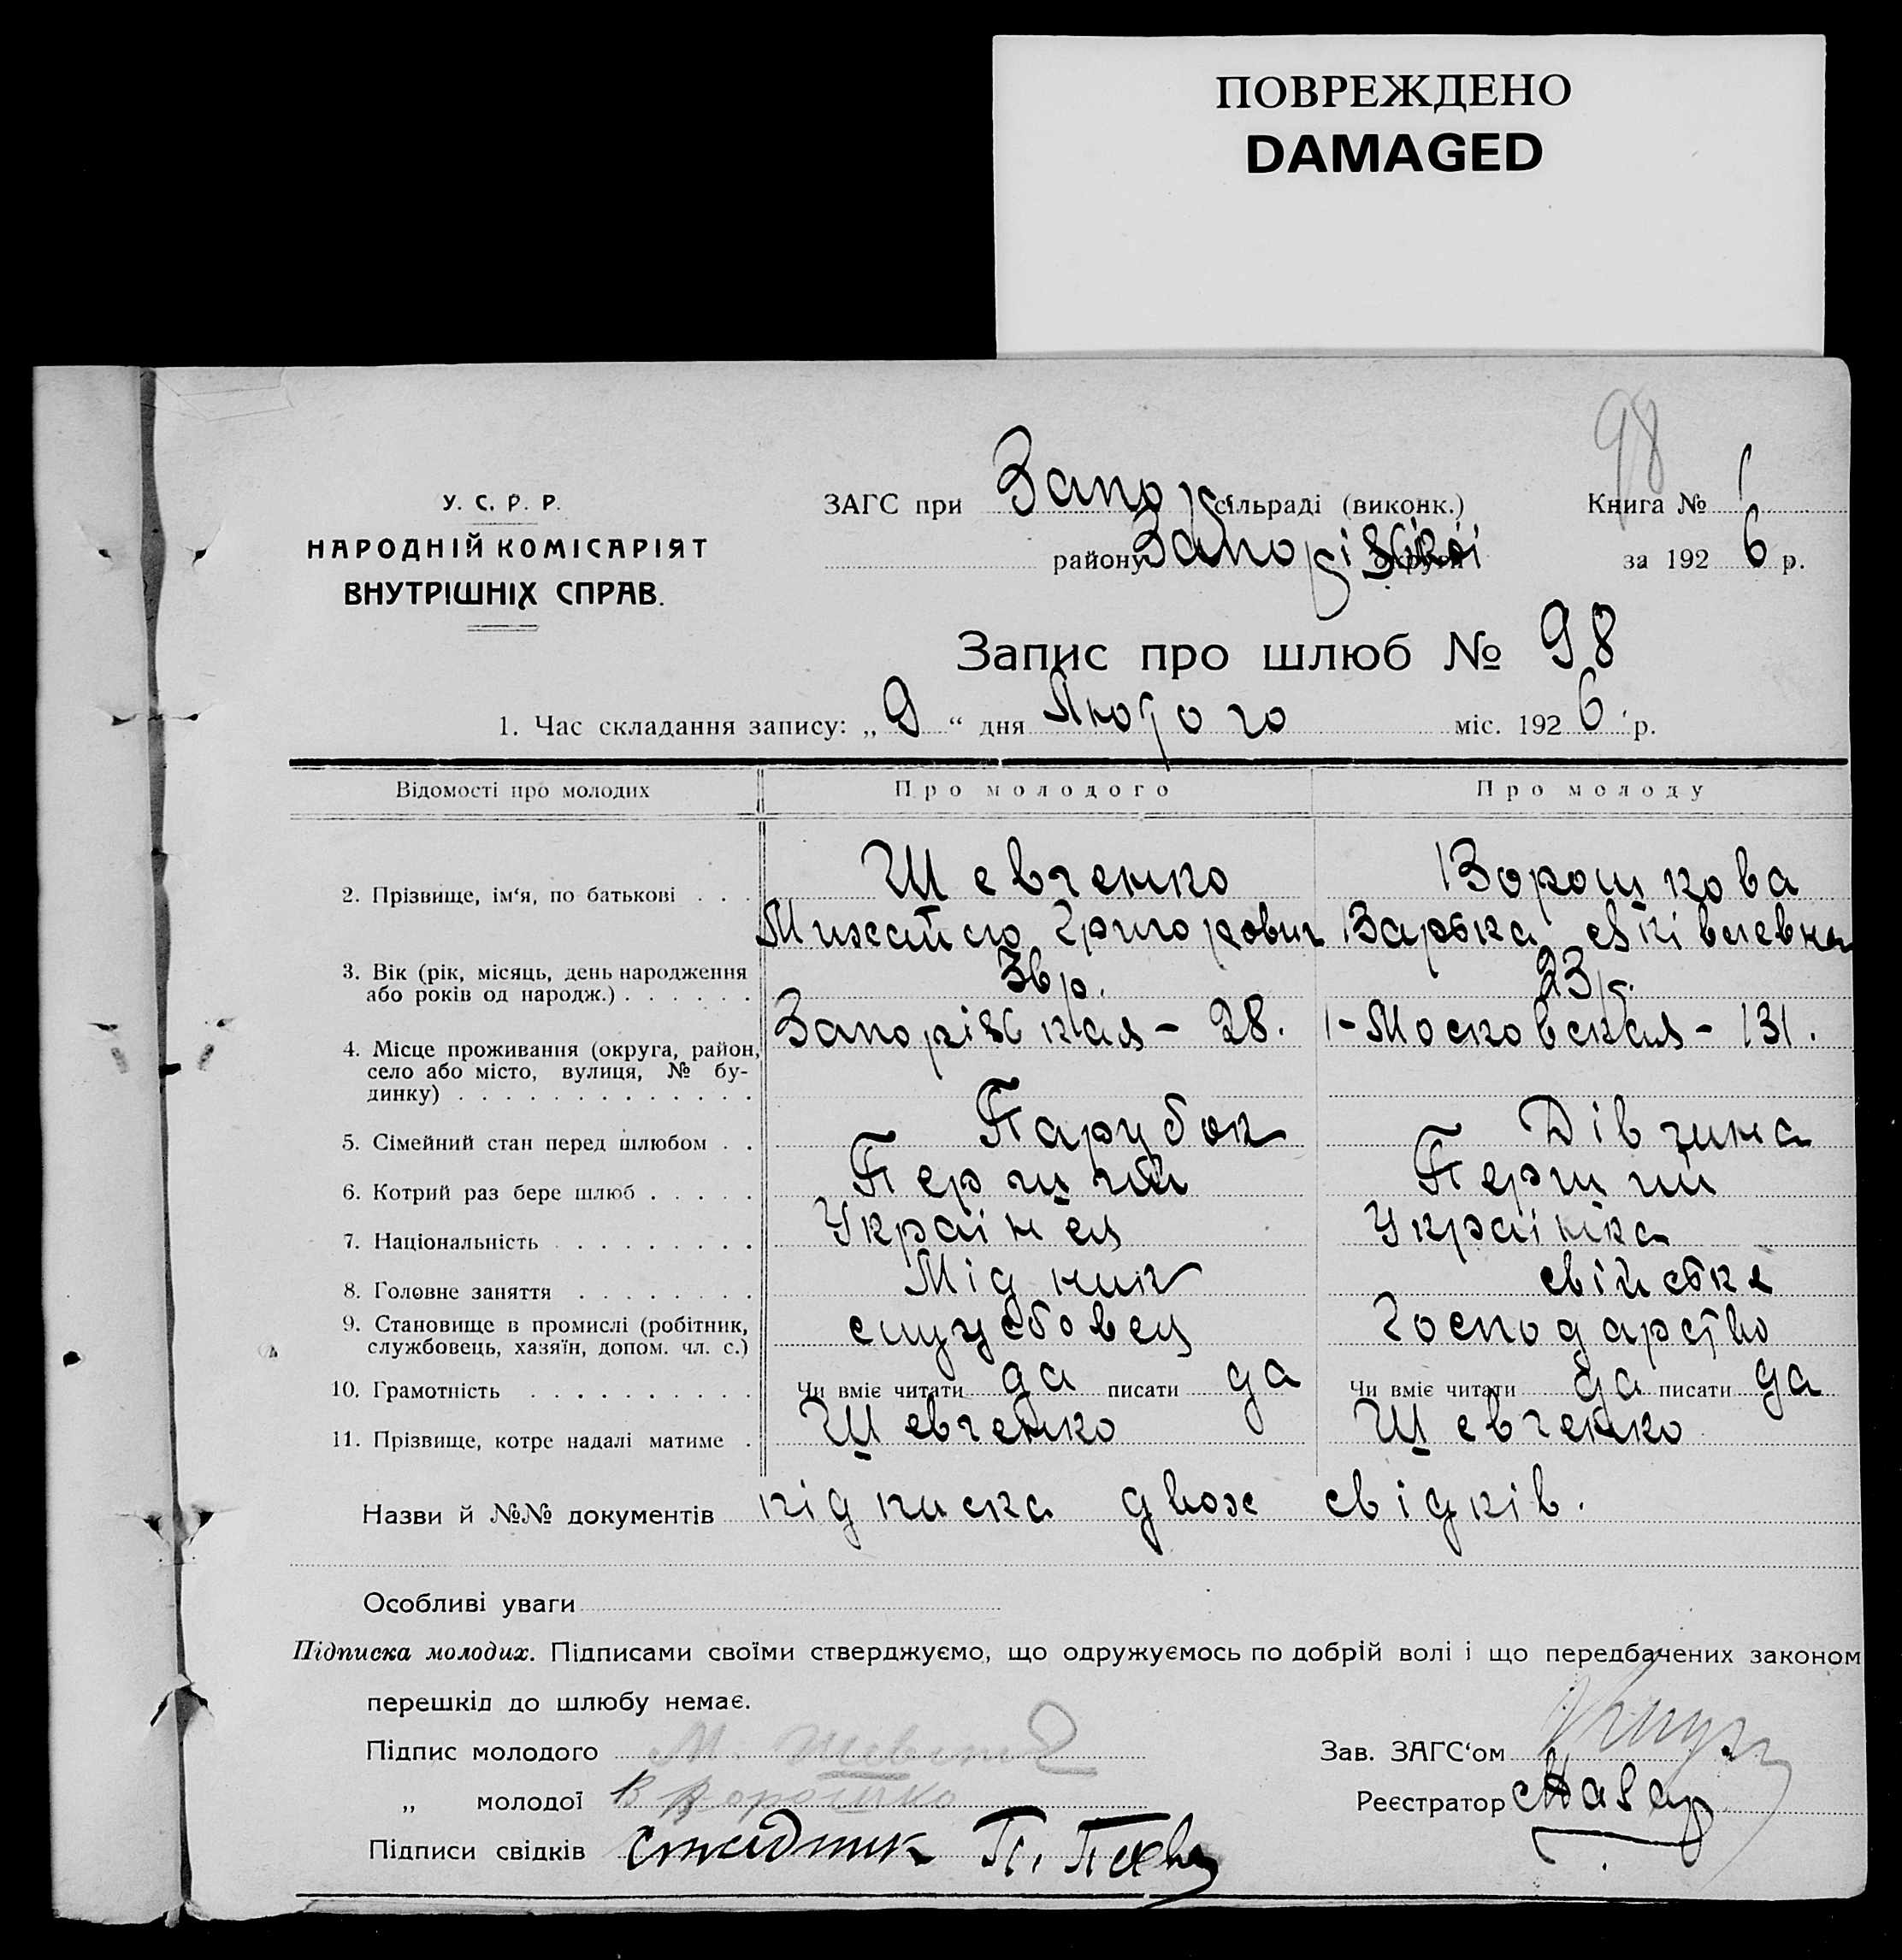 ПОВРЕЖДЕНО
DAMAGED
98
У. С. Р. Р.
НАРОДНІЙ КОМІСАРІЯТ
ВНУТРІШНІХ СПРАВ.
ЗАГС при Запор сільраді (виконк.) Книга № 1
району Запоріжскої округи за 1926 р.
Запис про шлюб № 98
1. Час складання запису: „ 9 “ дня Лютого міс. 1926 р.
Відомості про молодих Про молодого Про молоду
2. Прізвище, ім‘я, по батькові . . . Шевченко Ворошкова
Михайло Григорович Варвка
3. Вік (рік, місяць, день народження
або років од народж.) . . . . . . 36 р. 23 р.
4. Місце проживання (округа, район,
село або місто, вулиця, № бу-
динку) . . . . . . . . . . . . . Запоріжская - 28. 1-Московская - 131.
5. Сімейний стан перед шлюбом . . Парубок Дівчина
6. Котрий раз бере шлюб . . . . . Перший Перший
7. Національність . . . . . . . . . Українец Українка
8. Головне заняття . . . . . . . . Мідник свійське
9. Становище в промислі (робітник,
службовець, хазяїн, допом. чл. с.) службовец Господарство
10. Грамотність . . . . . . . . . . Чи вміє читати да писати да Чи вміє читати да писати да
11. Прізвище, котре надалі матиме . Шевченко Шевченко
Назви й №№ документів підписка двох свідків.
Особливі уваги
Підписка молодих. Підписами своїми стверджуємо, що одружуємось по добрій волі і що передбачених законом
перешкід до шлюбу немає.
Підпис молодого М. Зав. ЗАГС‘ом
„ молодої В Ворошко Реєстратор
Підписи свідків П.